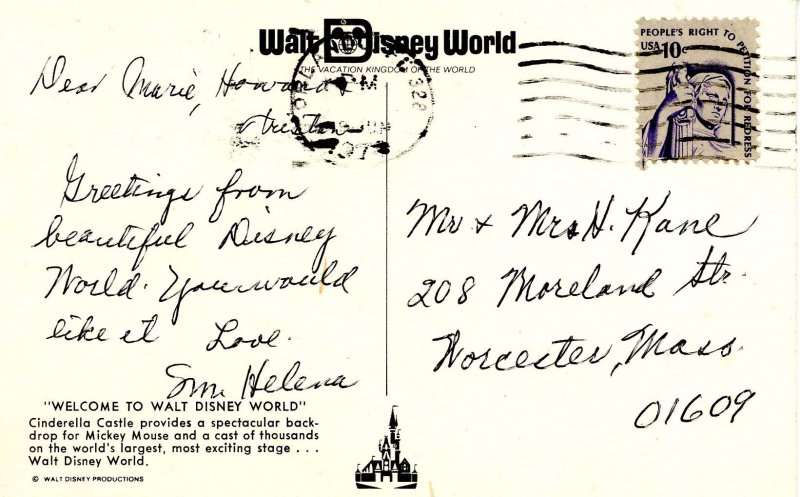 Walt Disney World
THE VACATION KINGDOM OF THE WORLD
PEOPLE'S RIGHT TO PETITION FOR REDRESS
USA 10c
PM
JUN
Dear Marie, Howard
Greetings from
beautiful Disney
World. You would
like it Love.
Helena
Mr & Mrs H. Kane
208 Moreland Str.
Worcester, Mass.
01609
"WELCOME TO WALT DISNEY WORLD"
Cinderella Castle provides a spectacular back-
drop for Mickey Mouse and a cast of thousands
on the world's largest, most exciting stage . . .
Walt Disney World.
© WALT DISNEY PRODUCTIONS